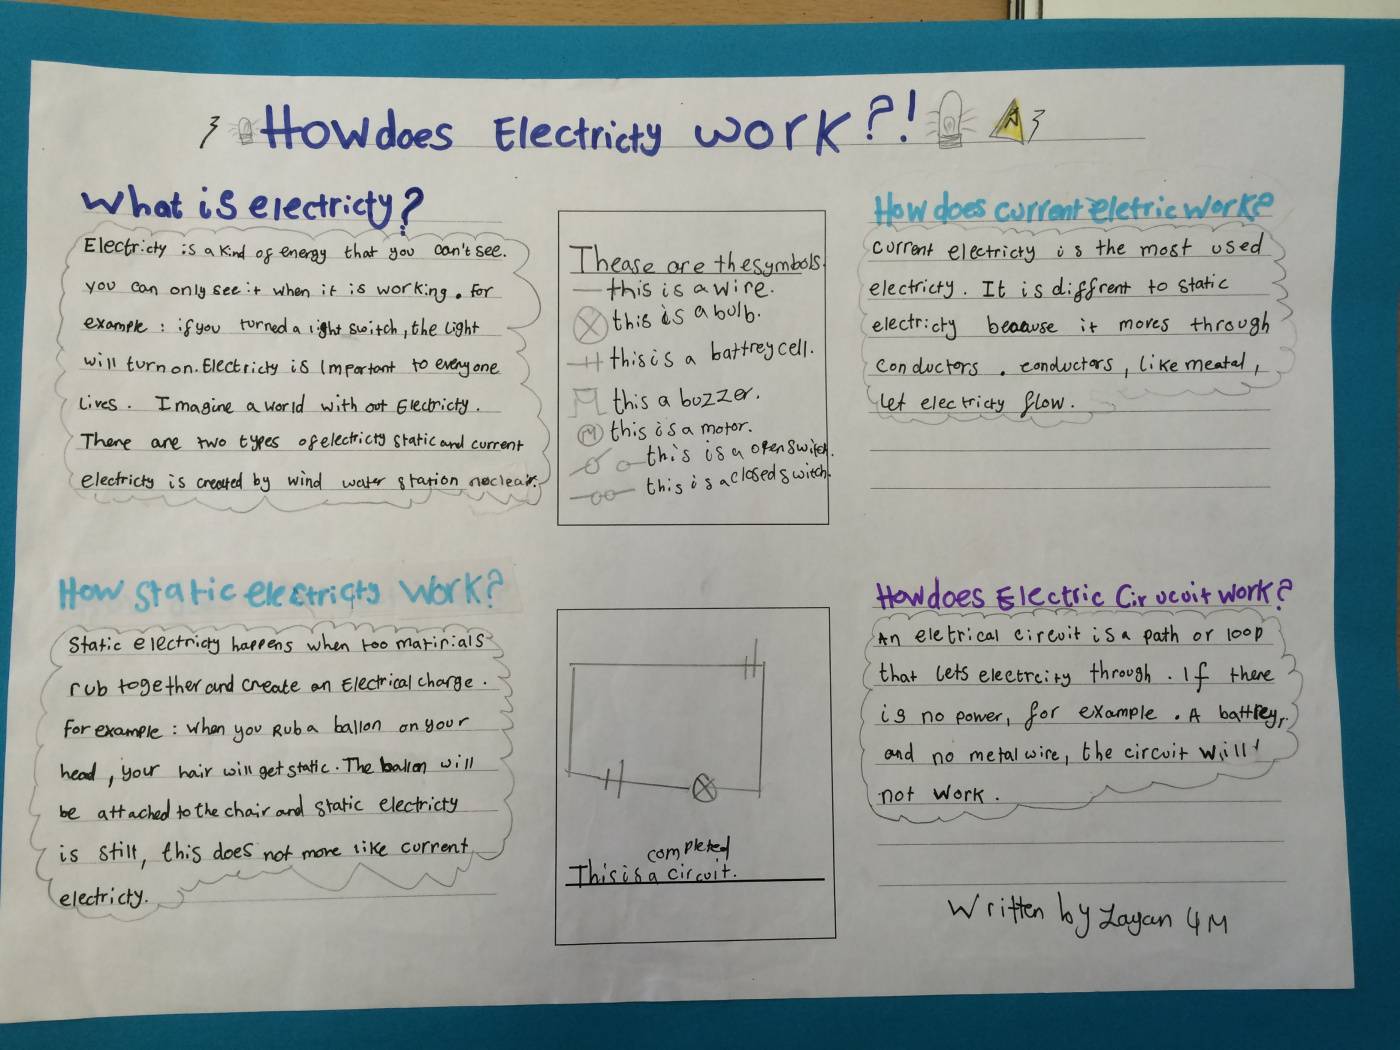 How does Electricty work?!
What is electricty?
Electricty is a kind of energy that you can't see.
you can only see it when it is working. for
example: if you turned a light switch, the light
will turn on. Electricty is Important to everyone
lives. Imagine a world with out Electricty.
There are two types of electricty static and current
electricty is created by wind water station noclear.
Thease are the symbols.
this is a wire.
this is a bulb.
this is a battrey cell.
this a buzzer.
M this is a motor.
this is a open switch.
this is a closed switch.
How does current eletric work?
current electricty is the most used
electricty. It is diffrent to static
electricty beacuse it moves through
conductors. conductors, like meatal,
let electricty flow.
How static electricty work?
Static electricty happens when too matirials
rub together and create an Electrical charge.
for example: when you Rub a ballon on your
head, your hair will get static. The ballon will
be attached to the chair and static electricty
is still, this does not more like current
electricty.
completed
This is a circuit.
How does Electric Circucuit work?
An eletrical circuit is a path or loop
that lets electrcity through. If there
is no power, for example. A battrey,
and no metal wire, the circuit will
not work.
Written by Layan 4M